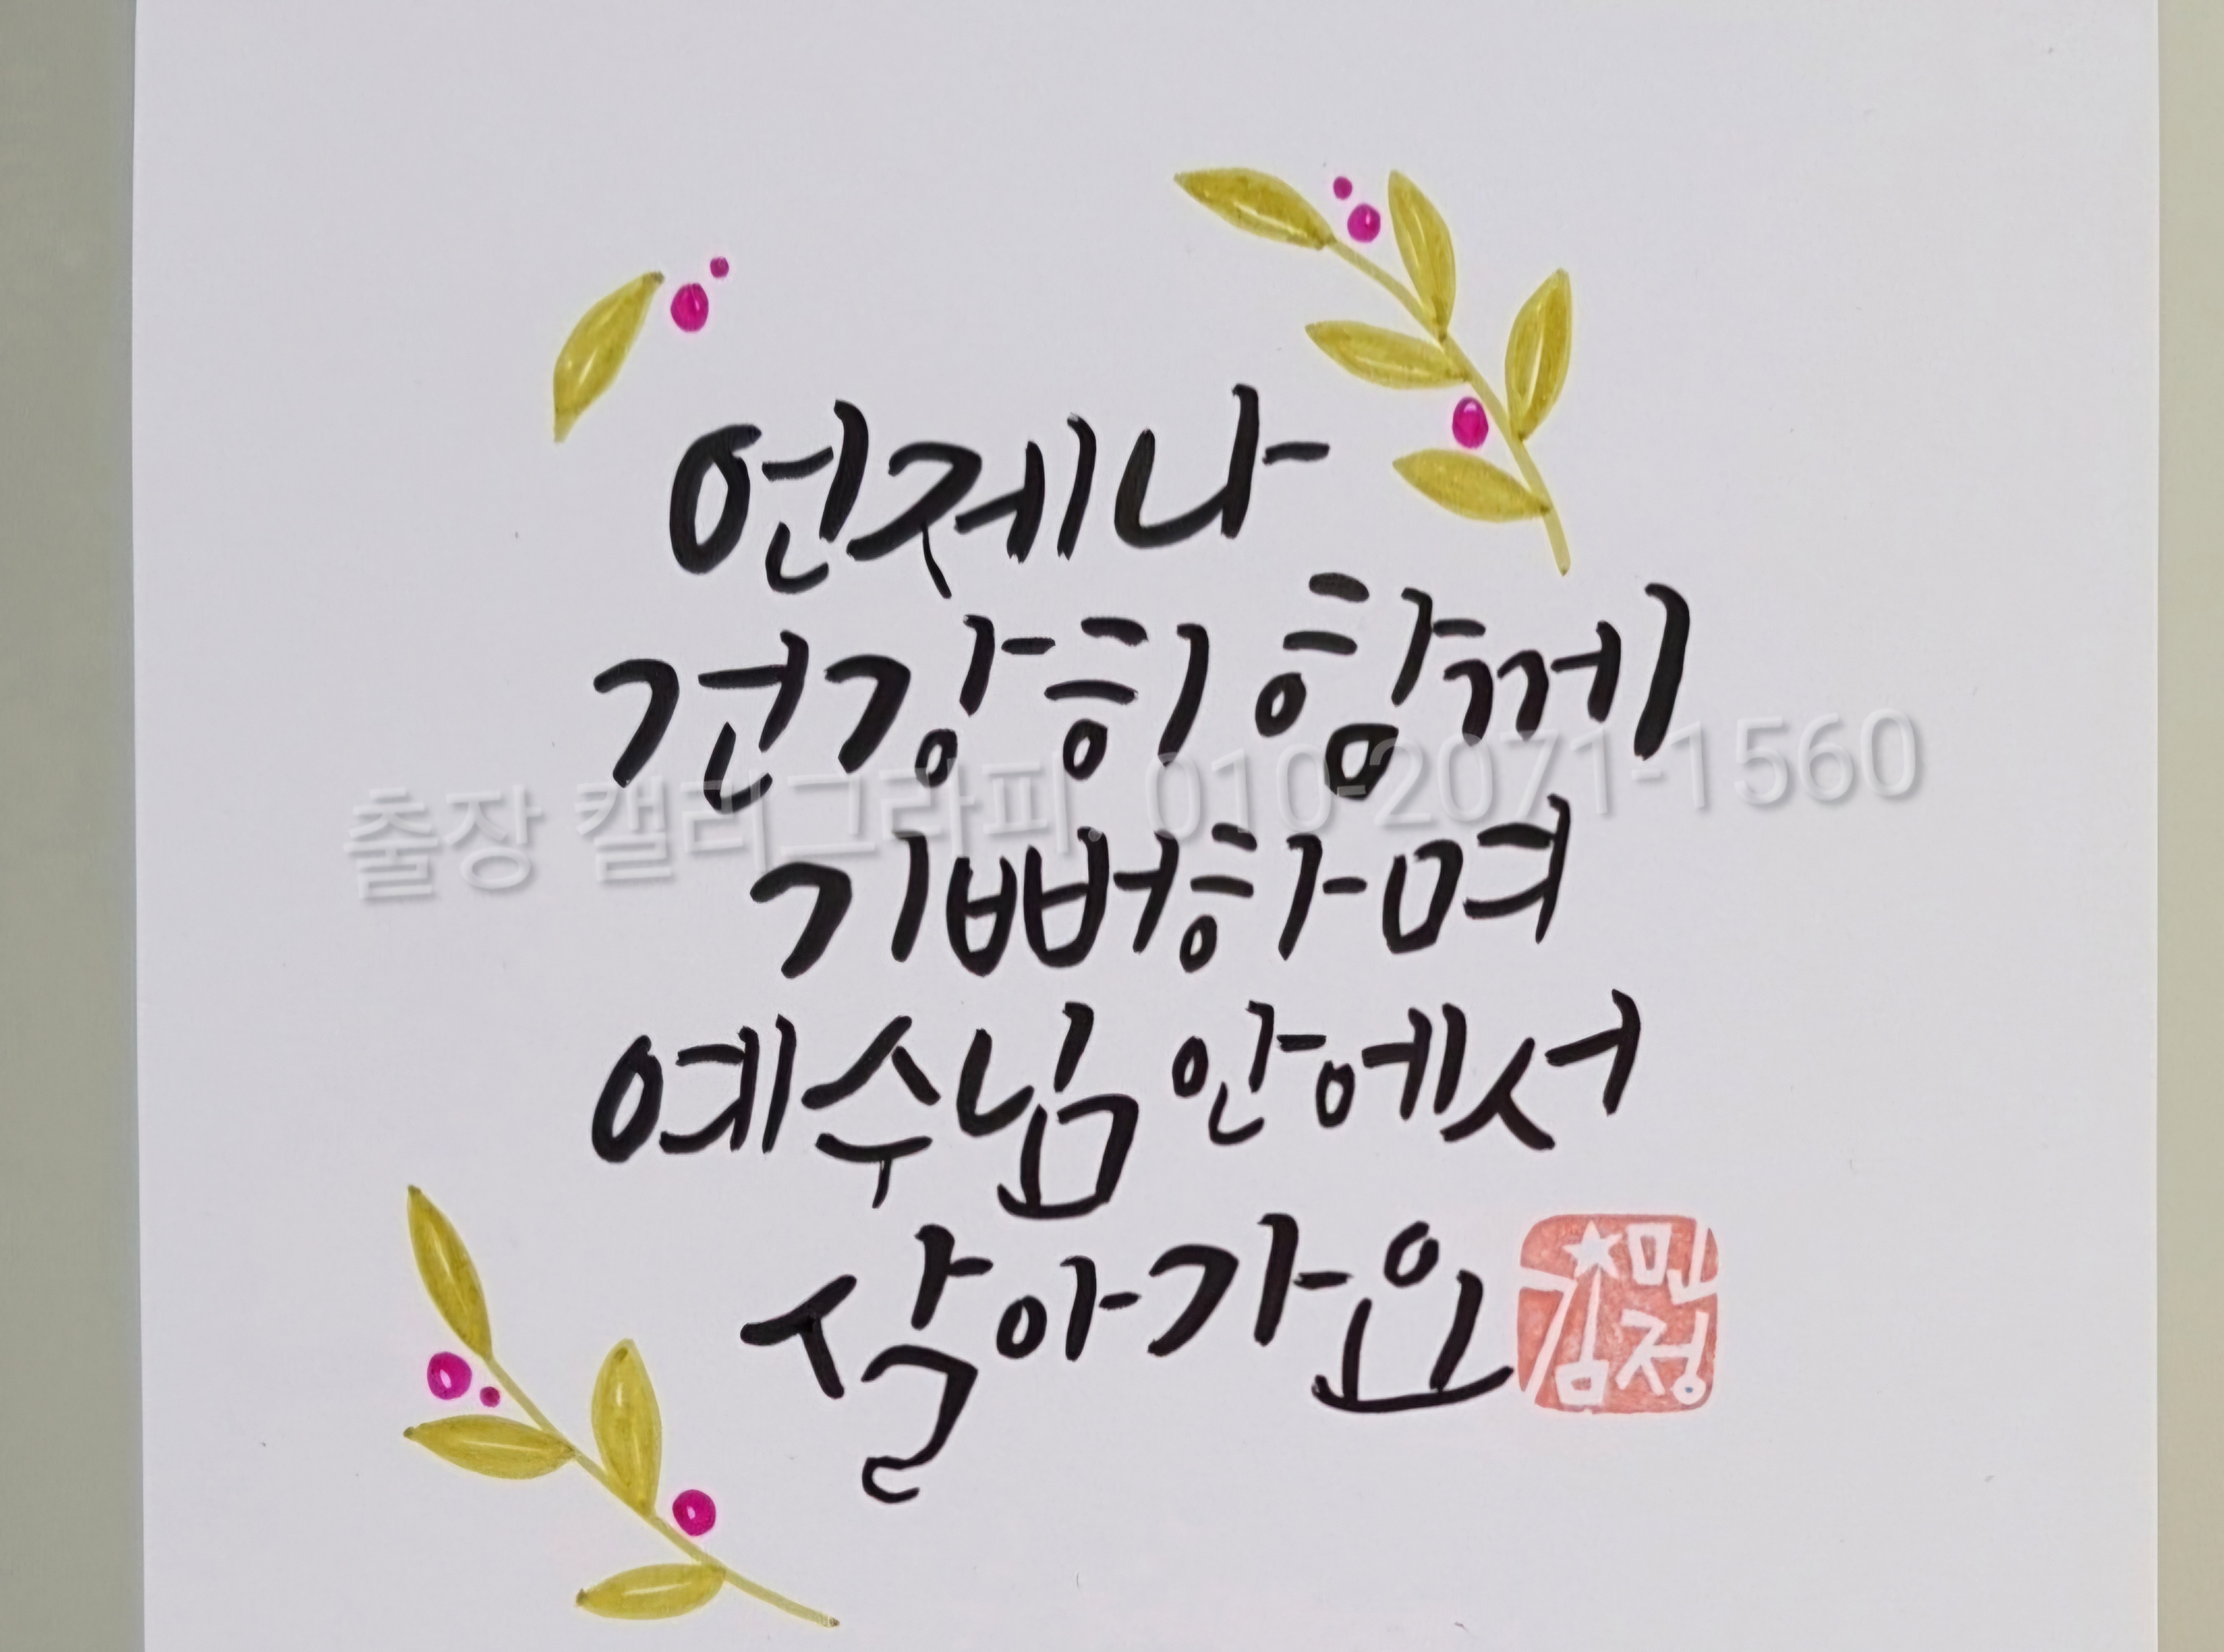 언제나
건강히 함께
출장 캘리그라피. 010-2071-1560
기뻐하며
예수님 안에서
살아가요
김민정